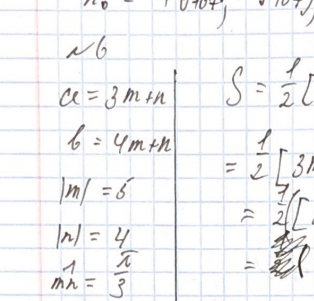 №6
a = 3m+n
b = 4m+n
|m| = 5
|n| = 4
m^n = π/3
S = 1/2 [
= 1/2 [ 3
= 1/2 ([
=